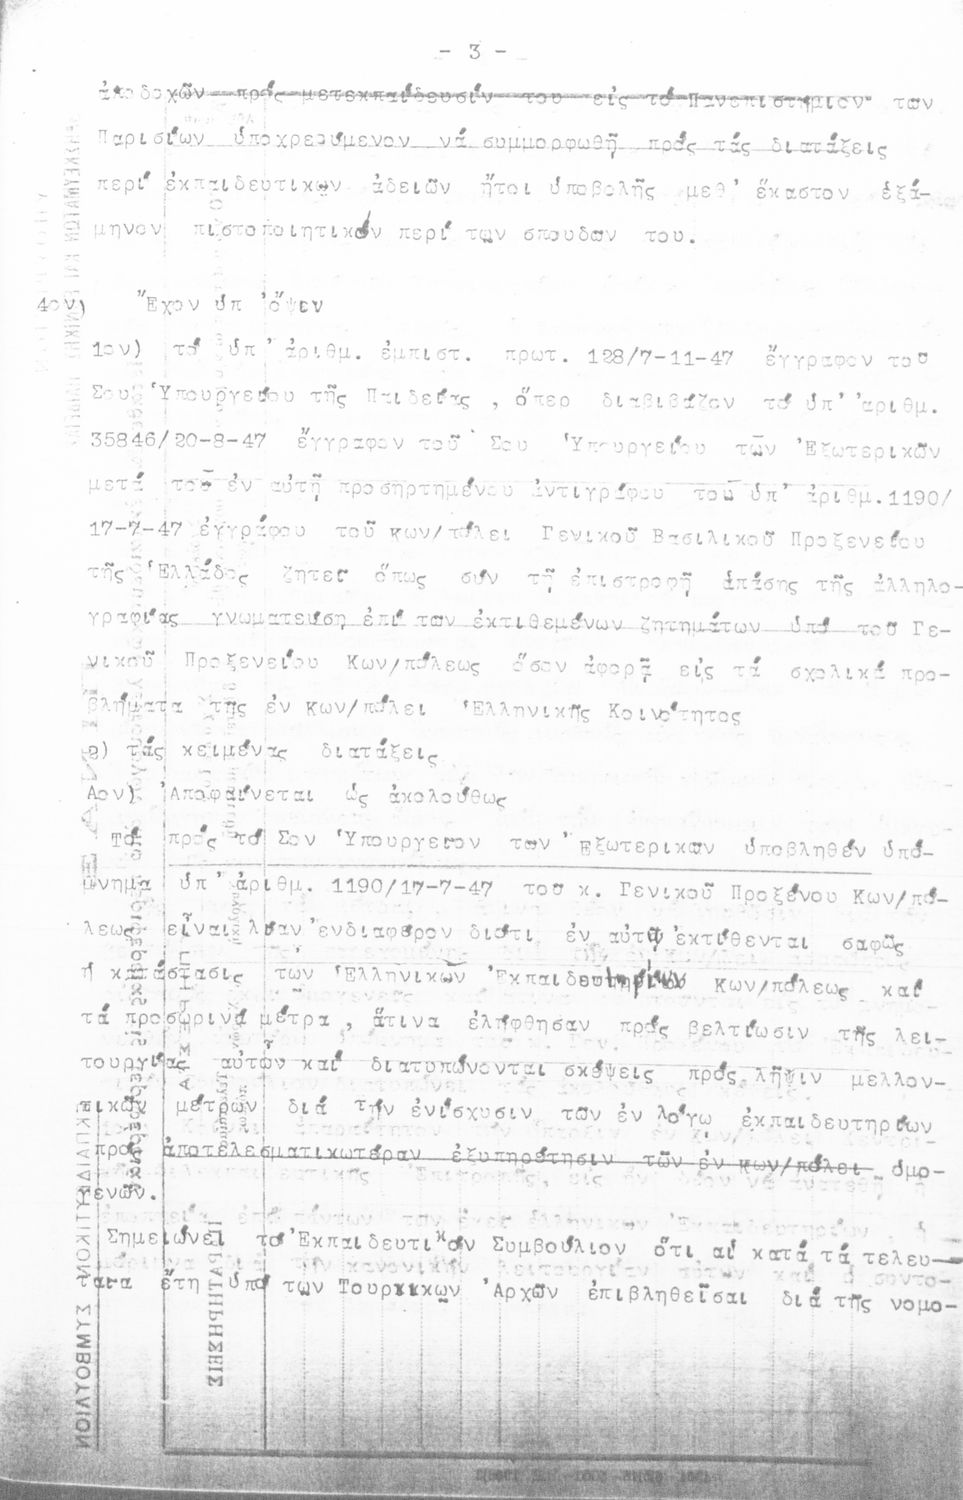 - 3 -
ἀποδοχῶν πρός μετεκπαίδευσίν του εἰς τό Πανεπιστήμιον των
Παρισίων ὑποχρεούμενον νά συμμορφωθῇ πρός τάς διατάξεις
περί ἐκπαιδευτικων ἀδειῶν ἤτοι ὑποβολῆς μεθ' ἕκαστον ἑξά-
μηνον πιστοποιητικόν περί των σπουδων του.
4ον) Ἔχον ὑπ'ὄψεν
1ον) τό ὑπ' ἀριθμ. ἐμπιστ. πρωτ. 128/7-11-47 ἔγγραφον τοῦ
Σου Ὑπουργείου τῆς Παιδείας , ὅπερ διαβιβάζον τό ὑπ' ἀριθμ.
35846/20-8-47 ἔγγραφον τοῦ Σου Ὑπουργείου τῶν Ἐξωτερικῶν
μετά τοῦ ἐν αὐτῇ προσηρτημένου ἀντιγράφου τοῦ ὑπ' ἀριθμ.1190/
17-7-47 ἐγγράφου τοῦ κων/πόλει Γενικοῦ Βασιλικοῦ Προξενείου
τῆς Ἑλλάδος ζητεῖ ὅπως σύν τῇ ἐπιστροφῇ ἁπάσης τῆς ἀλληλο-
γραφίας γνωματεύση ἐπί των ἐκτιθεμένων ζητημάτων ὑπό τοῦ Γε-
νικοῦ Προξενείου Κων/πόλεως ὅσον ἀφορᾷ εἰς τά σχολικά προ-
βλήματα τῆς ἐν κων/πόλει Ἑλληνικῆς Κοινότητος
2) τάς κειμένας διατάξεις
Αον) Ἀποφαίνεται ὡς ἀκολούθως
Τό πρός τό Σον Ὑπουργεῖον των Ἐξωτερικων ὑποβληθέν ὑπό-
μνημα ὑπ' ἀριθμ. 1190/17-7-47 του κ. Γενικοῦ Προξένου Κων/πό-
λεως εἶναι λίαν ἐνδιαφέρον διότι ἐν αὐτῷ ἐκτίθενται σαφῶς
ἡ κατάστασις τῶν Ἑλληνικῶν Ἐκπαιδευτηρίων Κων/πόλεως καί
τά προσωρινά μέτρα , ἅτινα ἐλήφθησαν πρός βελτίωσιν τῆς λει-
τουργίας αὐτῶν καί διατυπώνονται σκέψεις πρός λῆψιν μελλον-
τικῶν μέτρων διά τήν ἐνίσχυσιν τῶν ἐν λόγω ἐκπαιδευτηρίων
πρός ἀποτελεσματικωτέραν ἐξυπηρέτησιν τῶν ἐν κων/πόλει ὁμο-
γενῶν.
Σημειώνει τό Ἐκπαιδευτικόν Συμβούλιον ὅτι αἱ κατά τά τελευ-
ταῖα ἔτη ὑπό των Τουρκικων Ἀρχῶν ἐπιβληθεῖσαι διά τῆς νομο-